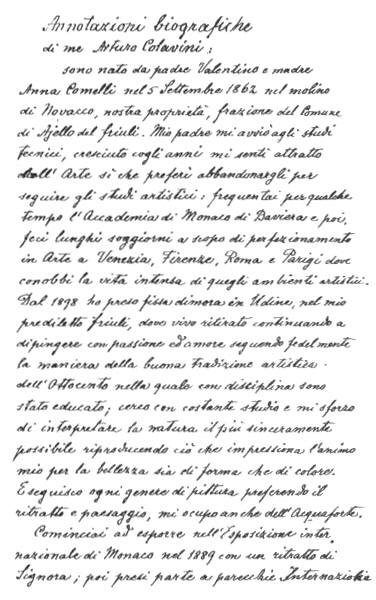 Annotazioni biografiche
di me Arturo Colavini:
sono nato da padre Valentino e madre
Anna Comelli nel 5 Settembre 1862 nel molino
di Novacco, nostra proprietà, frazione del Comune
di Ajello del friuli. Mio padre mi avviò agli studi
tecnici, cresciuto cogli anni mi sentì attratto
dall'Arte sì che preferì abbandonargli per
seguire gli studi artistici: frequentai per qualche
tempo l'Accademia di Monaco di Baviera e poi,
feci lunghi soggiorni a scopo di perfezionamento
in Arte a Venezia, Firenze, Roma e Parigi dove
conobbi la vita intensa di quegli ambienti artistici.
Dal 1898 ho preso fissa dimora in Udine, nel mio
prediletto friuli, dove vivo ritirato continuando a
dipingere con passione ed amore seguendo fedelmente
la maniera della buona tradizione artistica.
dell'Ottocento nella quale con disciplina sono
stato educato; cerco con costante studio e mi sforzo
di interpretare la natura il più sinceramente
possibile riproducendo ciò che impressiona l'animo
mio per la bellezza sia di forma che di colore.
Eseguisco ogni genere di pittura preferendo il
ritratto e paesaggio, mi occupo anche dell'Acquaforte.
Cominciai ad esporre nell'Esposizione inter
nazionale di Monaco nel 1889 con un ritratto di
Signora; poi presi parte a parecchie